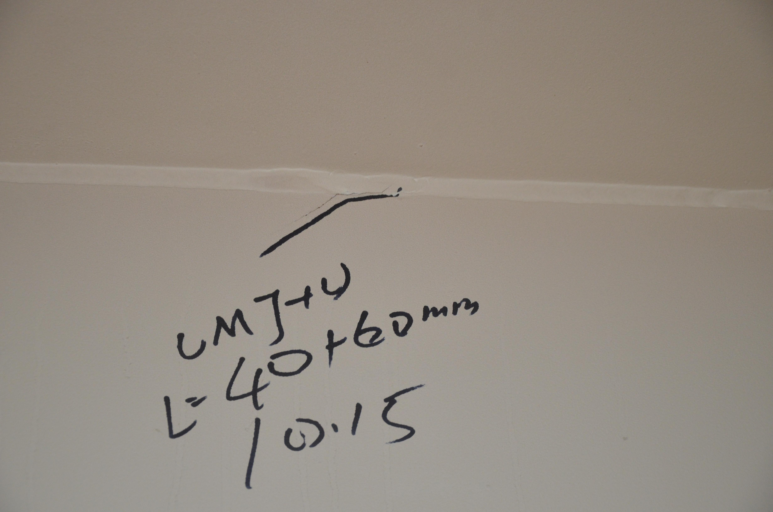 UMJ+U
L=40+60mm
10.15